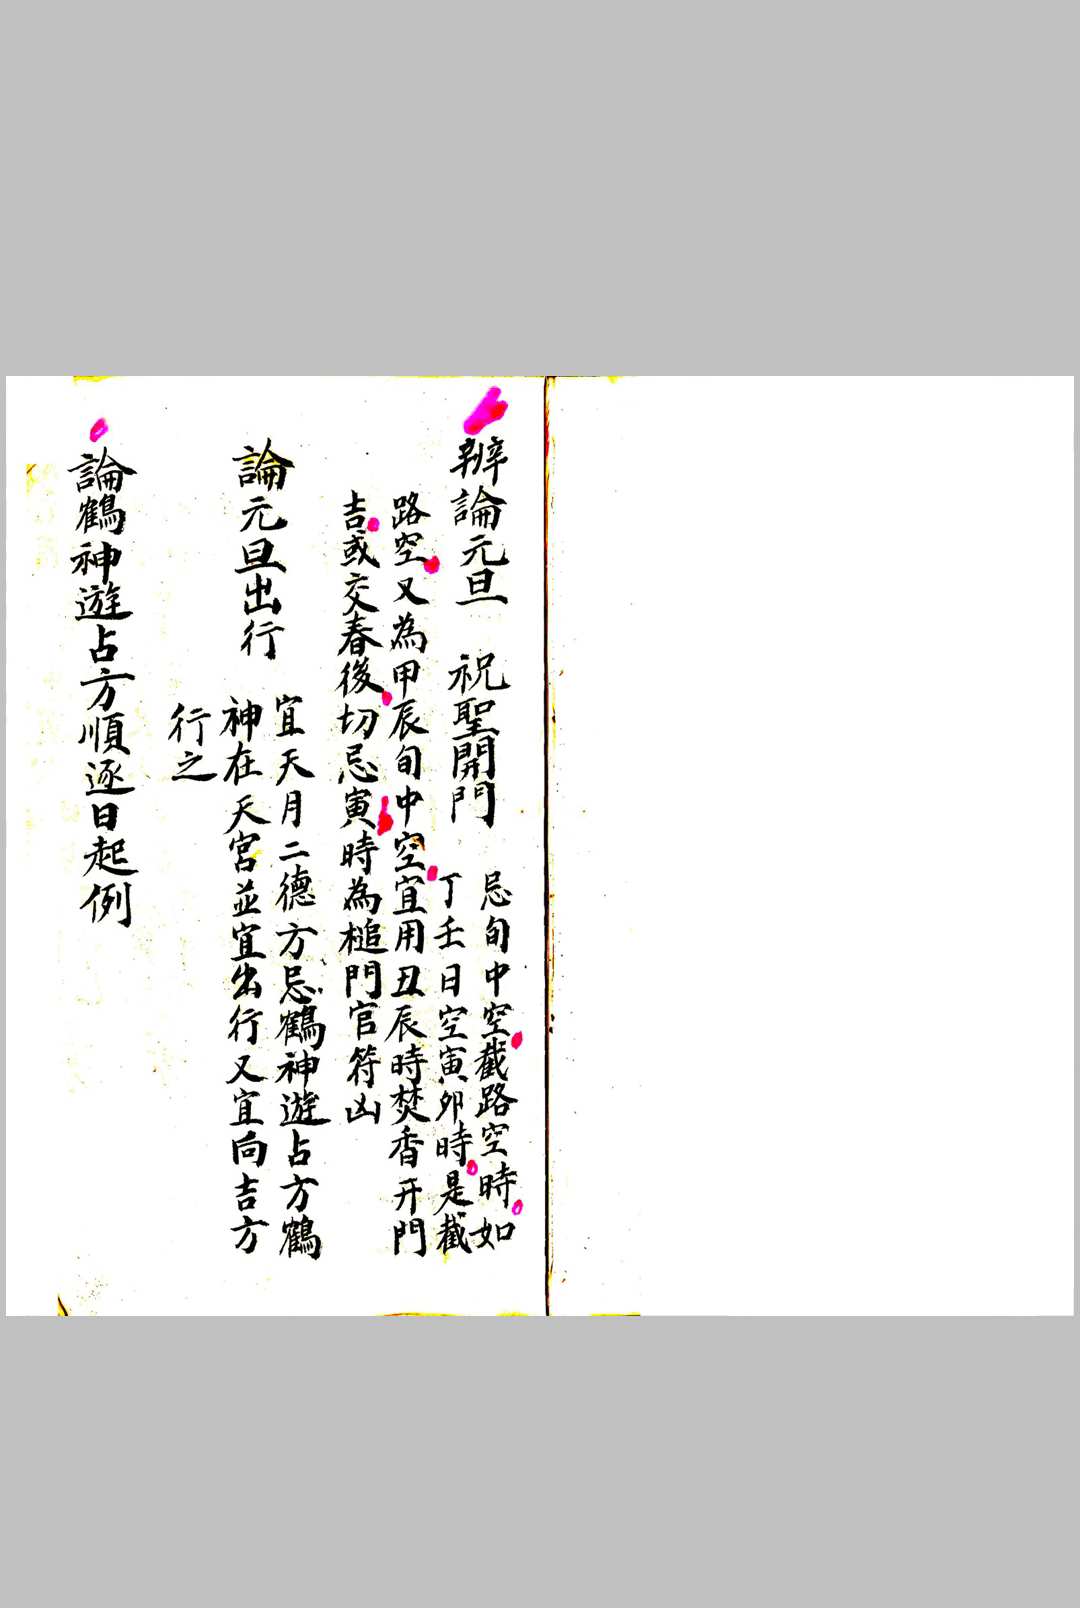 辦論元旦　祝聖開門
忌旬中空截路空時如
丁壬日空寅卯時是截
路空又為甲辰旬中空宜用丑辰時焚香开門
吉或交春後切忌寅時為槌門官符凶
論元旦出行
宜天月二德方忌鶴神遊占方鶴
神在天宮並宜出行又宜向吉方
行之
論鶴神遊占方順逐日起例